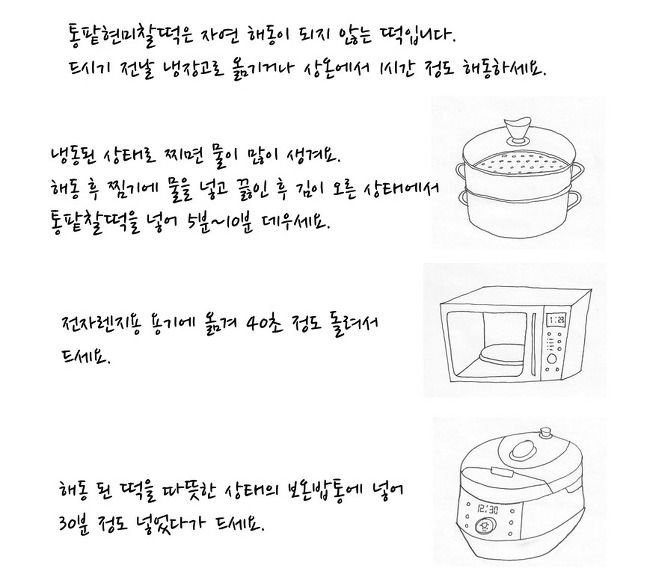 통팥현미찰떡은 자연 해동이 되지 않는 떡입니다.
드시기 전날 냉장고로 옮기거나 상온에서 1시간 정도 해동하세요.
냉동된 상태로 찌면 물이 많이 생겨요.
해동 후 찜기에 물을 넣고 끓인 후 김이 오른 상태에서
통팥찰떡을 넣어 5분~10분 데우세요.
전자렌지용 용기에 옮겨 40초 정도 돌려서
드세요.
1:28
해동 된 떡을 따뜻한 상태의 보온밥통에 넣어
30분 정도 넣었다가 드세요.
12:30